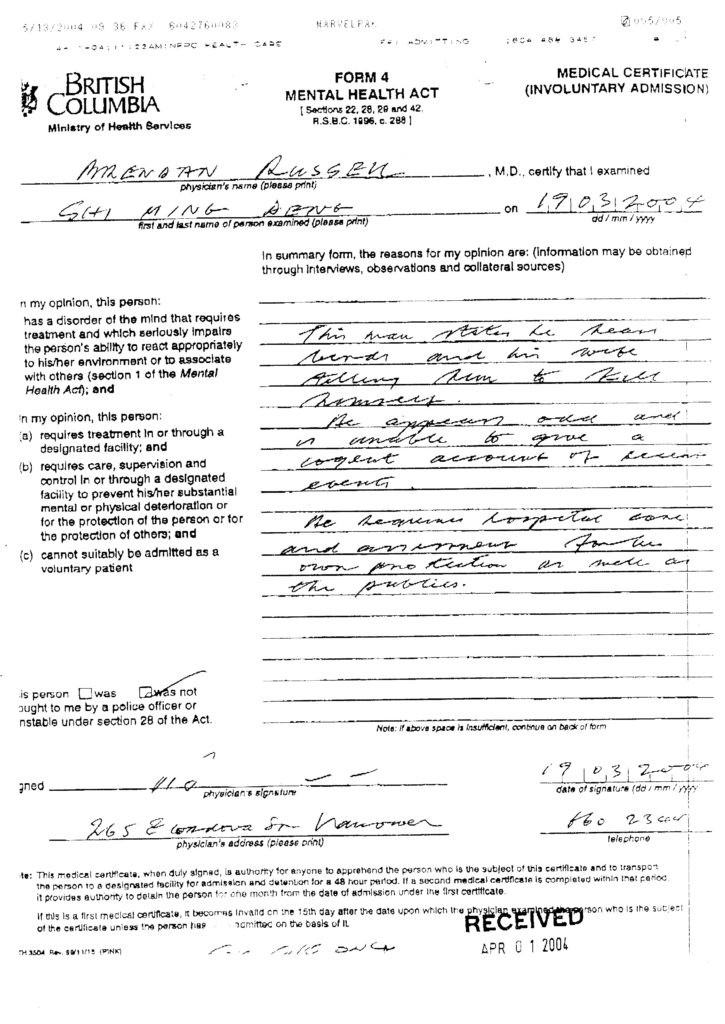 5/13/2004 09 36 FAX 6042760083 MARVELPAK 005/005
HEALTH CARE ADMITTING 604
BRITISH COLUMBIA
Ministry of Health Services
FORM 4
MENTAL HEALTH ACT
[ Sections 22, 28, 29 and 42,
R.S.B.C. 1996, c. 288 ]
MEDICAL CERTIFICATE
(INVOLUNTARY ADMISSION)
, M.D., certify that I examined
physician's name (please print)
SHI MING DENG on 19 03 2004
first and last name of person examined (please print) dd / mm / yyyy
In summary form, the reasons for my opinion are: (information may be obtained
through interviews, observations and collateral sources)
n my opinion, this person:
has a disorder of the mind that requires
treatment and which seriously impairs
the person's ability to react appropriately
to his/her environment or to associate
with others (section 1 of the Mental
Health Act); and
in my opinion, this person:
(a) requires treatment in or through a
designated facility; and
(b) requires care, supervision and
control in or through a designated
facility to prevent his/her substantial
mental or physical deterioration or
for the protection of the person or for
the protection of others; and
(c) cannot suitably be admitted as a
voluntary patient
This man states he hears
birds and his wife
telling him to kill
himself.
He appears odd and
is unable to give a
cogent account of recent
events.
He requires hospital care
and assessment for his
own protection as well as
the publics.
is person was was not
ought to me by a police officer or
nstable under section 28 of the Act.
Note: if above space is insufficient, continue on back of form
gned
physician's signature
19 03 2004
date of signature (dd / mm / yyyy
265 E Cordova St Vancouver
physician's address (please print)
telephone
te: This medical certificate, when duly signed, is authority for anyone to apprehend the person who is the subject of this certificate and to transport
the person to a designated facility for admission and detention for a 48 hour period. If a second medical certificate is completed within that period,
it provides authority to detain the person for one month from the date of admission under the first certificate.
If this is a first medical certificate, it becomes invalid on the 15th day after the date upon which the physician examined the person who is the subject
of the certificate unless the person has admitted on the basis of it.
RECEIVED
APR 01 2004
TH 3504 Rev. 99/11/15 (PINK)